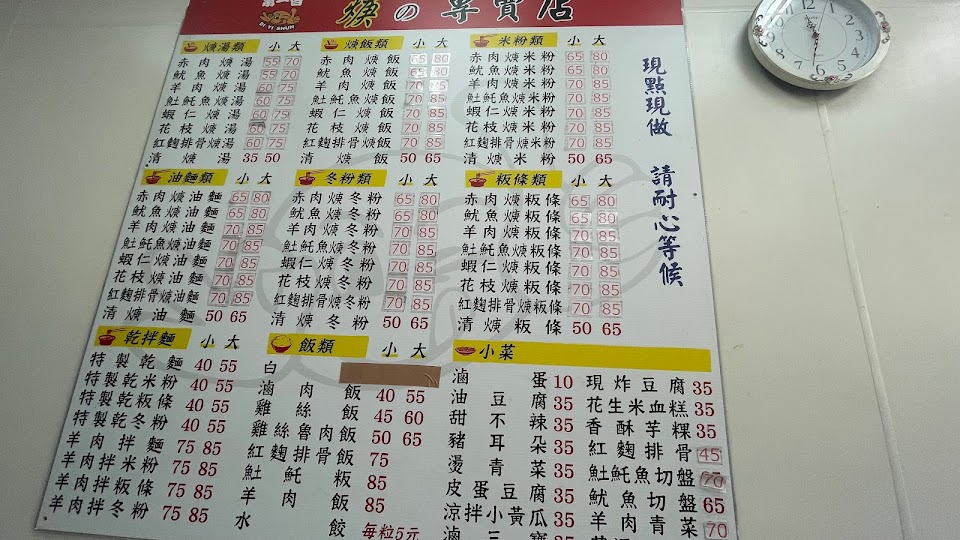 第一香
DI YI SHUN
焿の專賣店
焿湯類 小 大
赤肉焿湯 55 70
魷魚焿湯 55 70
羊肉焿湯 60 75
𩵚魠魚焿湯 60 75
蝦仁焿湯 60 75
花枝焿湯 60 75
紅麴排骨焿湯 60 75
清焿湯 35 50
焿飯類 小 大
赤肉焿飯 65 80
魷魚焿飯 65 80
羊肉焿飯 70 75
𩵚魠魚焿飯 70 85
蝦仁焿飯 70 85
花枝焿飯 70 85
紅麴排骨焿飯 70 85
清焿飯 50 65
米粉類 小 大
赤肉焿米粉 65 80
魷魚焿米粉 65 80
羊肉焿米粉 70 85
𩵚魠魚焿米粉 70 85
蝦仁焿米粉 70 85
花枝焿米粉 70 85
紅麴排骨焿米粉 70 85
清焿米粉 50 65
油麵類 小 大
赤肉焿油麵 65 80
魷魚焿油麵 65 80
羊肉焿油麵 70 85
𩵚魠魚焿油麵 70 85
蝦仁焿油麵 70 85
花枝焿油麵 70 85
紅麴排骨焿油麵 70 85
清焿油麵 50 65
冬粉類 小 大
赤肉焿冬粉 65 80
魷魚焿冬粉 65 80
羊肉焿冬粉 70 85
𩵚魠魚焿冬粉 70 85
蝦仁焿冬粉 70 85
花枝焿冬粉 70 85
紅麴排骨焿冬粉 70 85
清焿冬粉 50 65
粄條類 小 大
赤肉焿粄條 65 80
魷魚焿粄條 65 80
羊肉焿粄條 70 85
𩵚魠魚焿粄條 70 85
蝦仁焿粄條 70 85
花枝焿粄條 70 85
紅麴排骨焿粄條 70 85
清焿粄條 50 65
乾拌麵 小 大
特製乾麵 40 55
特製乾米粉 40 55
特製乾粄條 40 55
特製乾冬粉 40 55
羊肉拌麵 75 85
羊肉拌米粉 75 85
羊肉拌粄條 75 85
羊肉拌冬粉 75 85
飯類 小 大
白
滷肉飯 40 55
雞絲飯 45 60
雞絲魯肉飯 50 65
紅麴排骨飯 75
𩵚魠粄 85
羊肉飯 85
水餃 每粒5元
小菜
滷蛋 10
油豆腐 35
甜不辣 35
豬耳朵 35
燙青菜 35
皮蛋豆腐 35
涼拌小黃瓜 35
滷三寶
現炸豆腐 35
花生米血糕 35
香酥芋粿 35
紅麴排骨 45
𩵚魠魚切盤 70
魷魚切盤 65
羊肉青菜 70
現點現做 請耐心等候